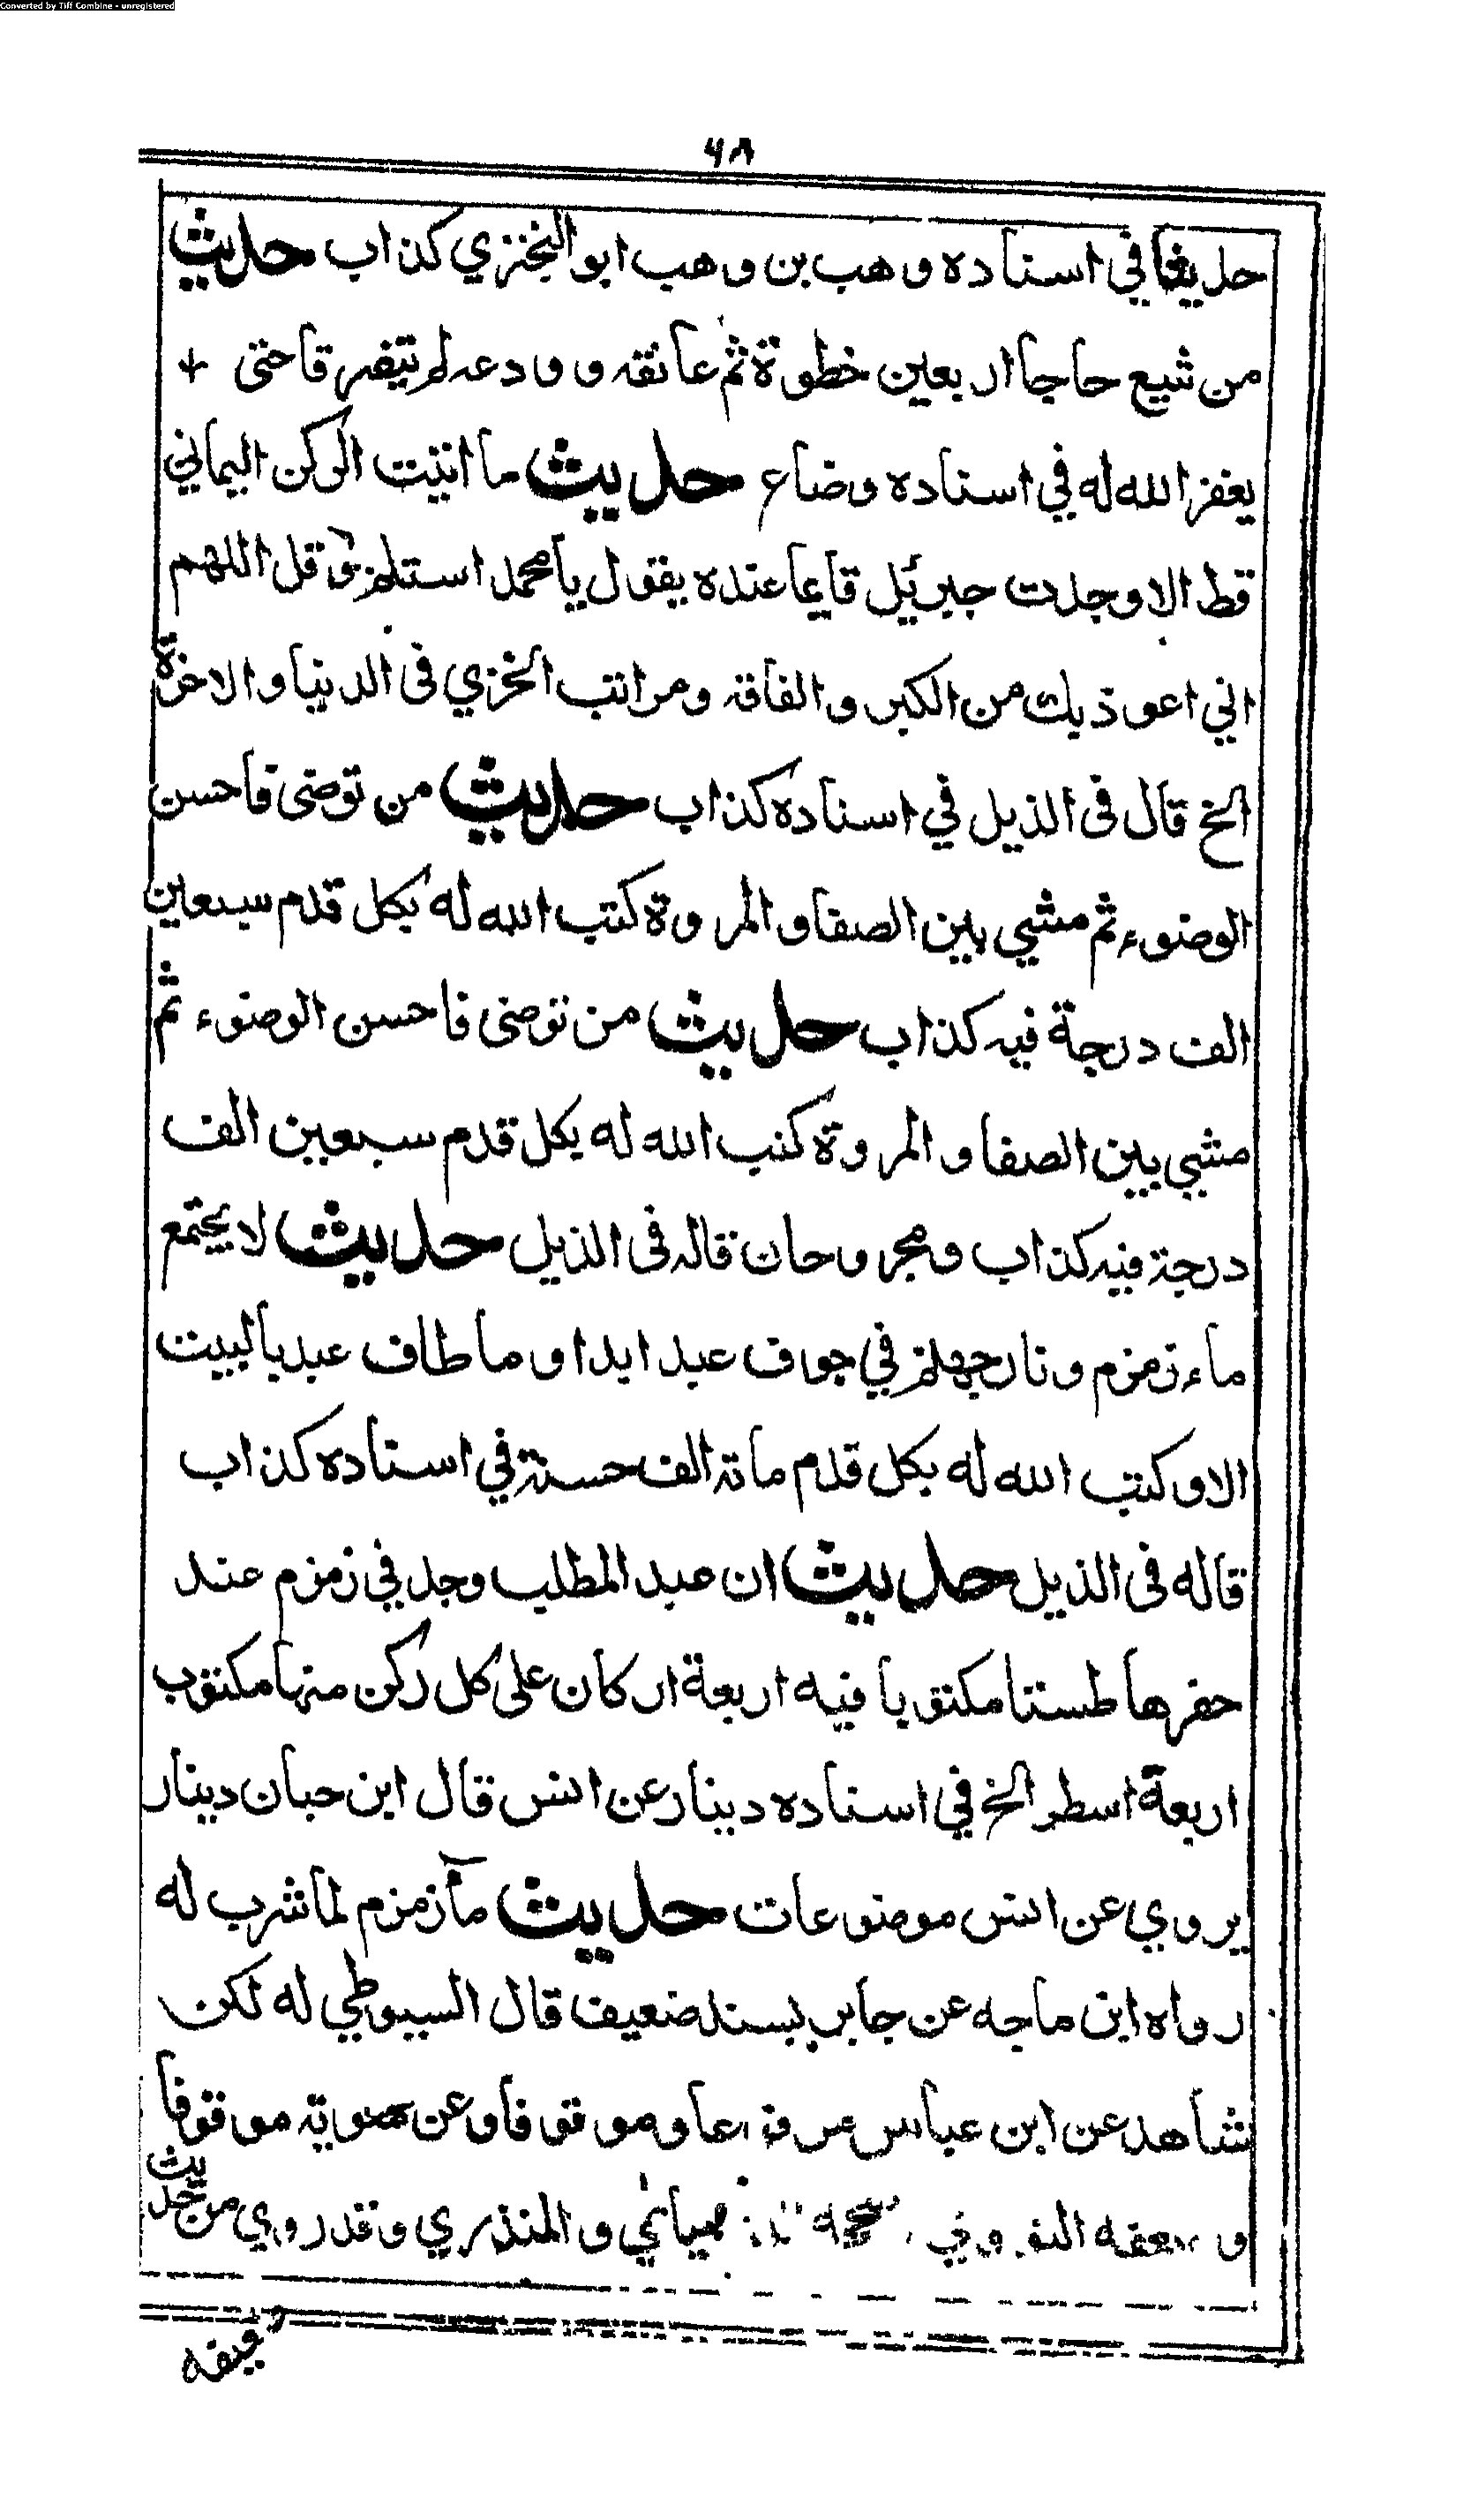 Converted by Tiff Combine - unregistered
٤٨
حليفا في اسناده وهب بن وهب ابو البختري كذاب حديث
من شيع حاجا اربعين خطوة ثم عانقه وودعه لم يتفرقا حتى
يغفر الله له في اسناده وضاع حديث ما اتيت الركن اليماني
قط الا وجدت جبرئيل قايما عنده يقول يا محمد استلم وقل اللهم
اني اعوذ بك من الكبر والفاقه ومراتب الخزي فى الدنيا والاخرة
الخ قال فى الذيل في اسناده كذاب حديث من توضى فاحسن
الوضوء ثم مشي بين الصفا والمروة كتب الله له بكل قدم سبعين
الف درجة فيه كذاب حديث من توضى فاحسن الوضوء ثم
مشي بين الصفا والمروة كتب الله له بكل قدم سبعين الف
درجة فيه كذاب ومجروحان قاله فى الذيل حديث لا يجتمع
ماء زمزم ونار جهنم في جوف عبد ابدا وما طاف عبد بالبيت
الا وكتب الله له بكل قدم مائة الف حسنة في اسناده كذاب
قاله فى الذيل حديث ان عبد المطلب وجد في زمزم عند
حفرها طستا مكتوبا فيه اربعة اركان على كل ركن منها مكتوب
اربعة اسطر الخ في اسناده دينار عن انس قال ابن حبان دينار
يروي عن انس موضوعات حديث مآ زمزم لما شرب له
رواه ابن ماجه عن جابر بسند ضعيف قال السيوطي له لكن
شاهد عن ابن عباس مرفوعا وموقوفا وعن معوية موقوفا
و ضعفه النووي وصححه الدمياطي والمنذري وقد روي من حديث